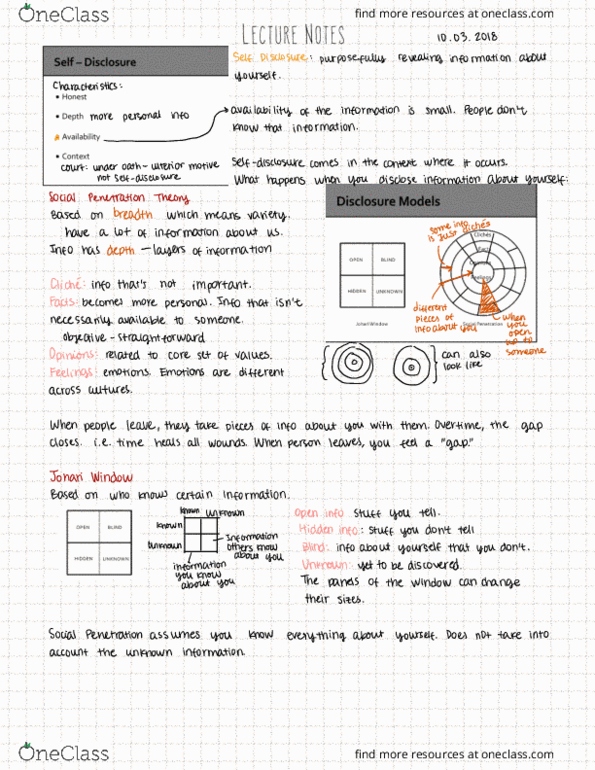 OneClass
find more resources at oneclass.com
LECTURE NOTES
10.03.2018
Self – Disclosure
Characteristics:
• Honest
• Depth more personal info
• Availability
• Context
court: under oath - ulterior motive
not self-disclosure
Self Disclosure: purposefully revealing information about
yourself.
availability of the information is small. People don't
know that information.
Self-disclosure comes in the context where it occurs.
What happens when you disclose information about yourself:
Social Penetration Theory
Based on breadth which means variety.
have a lot of information about us.
Info has depth - layers of information
Cliché: info that's not important.
Facts: becomes more personal. Info that isn't
necessarily available to someone.
objective - straightforward
Opinions: related to core set of values.
Feelings: emotions. Emotions are different
across cultures.
Disclosure Models
some info
is just clichés
OPEN BLIND
HIDDEN UNKNOWN
Johari Window
Clichés
Facts
Opinions
Feelings
Social Penetration
different
pieces of
info about you
when
you
open
up to
someone
can also
look like
When people leave, they take pieces of info about you with them. Overtime, the gap
closes. i.e. time heals all wounds. When person leaves, you feel a "gap."
Johari Window
Based on who knows certain information.
OPEN BLIND
HIDDEN UNKNOWN
known unknown
known
unknown
information
others know
about you
information
you know
about you
Open info stuff you tell.
Hidden info: stuff you don't tell
Blind: info about yourself that you don't.
Unknown: yet to be discovered.
The panels of the window can change
their sizes.
Social Penetration assumes you know everything about yourself. Does not take into
account the unknown information.
OneClass
find more resources at oneclass.com